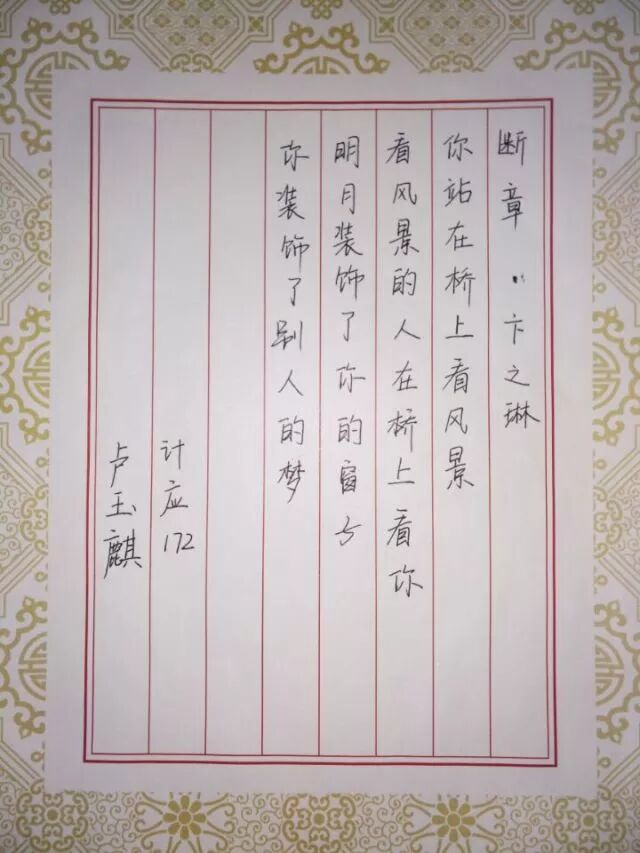 断章 卞之琳
你站在桥上看风景
看风景的人在桥上看你
明月装饰了你的窗子
你装饰了别人的梦
计应172
卢玉麒